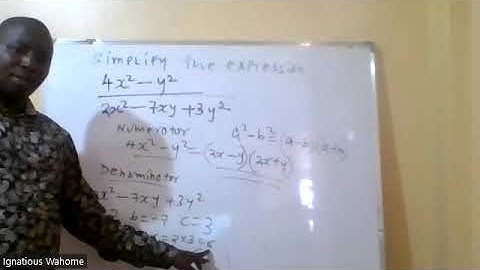 Simplify the expression
4x² – y²
2x² – 7xy + 3y²
Numerator
a² – b² = (a – b)(a + b)
4x² – y² = (2x – y)(2x + y)
Denominator
x² – 7xy + 3y²
b = –7 c = 3
= 2x3 = 6
Ignatious Wahome